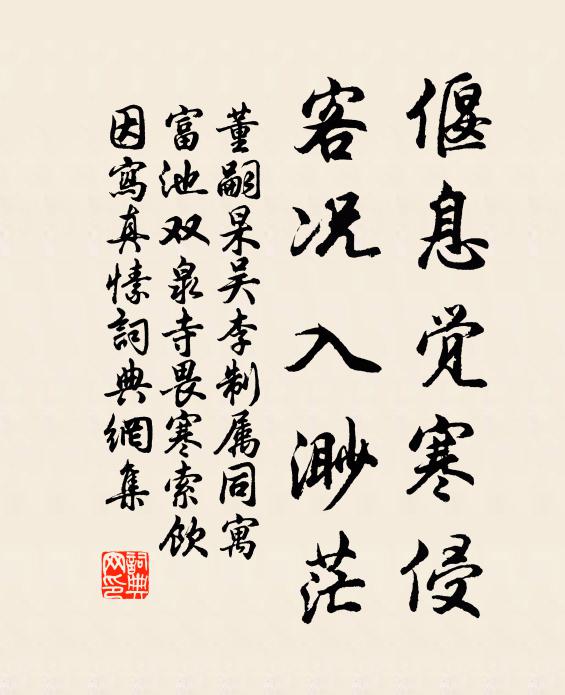 偃息觉寒侵
客况入渺茫
董嗣杲吴李制属同寓
富池双泉寺畏寒索饮
因寫真愫詞典網集
詞典網印